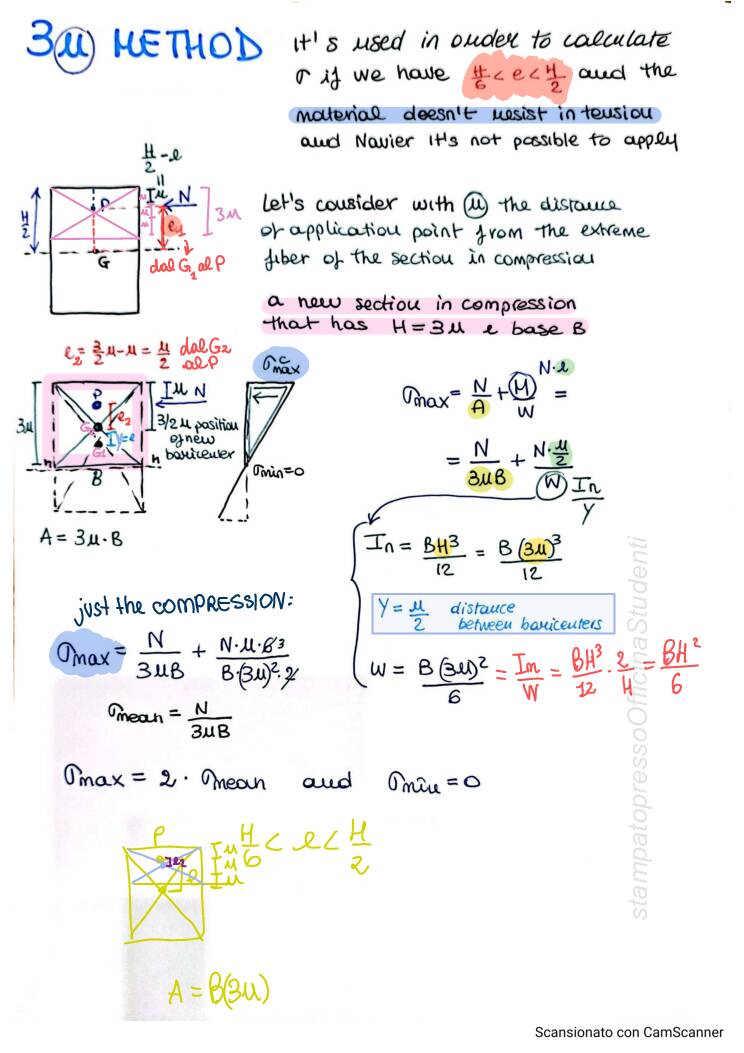 3u METHOD
it's used in order to calculate
σ if we have H/6 < e < H/2 and the
material doesn't resist in tension
and Navier it's not possible to apply
H/2 - e
=
I u N
H/2
u
u
u
3u
e1
G
dal G1 al P
Let's consider with u the distance
of application point from the extreme
fiber of the section in compression
a new section in compression
that has H = 3u e base B
e2 = 3/2 u - u = u/2 dal G2 al P
3u
P
I u N
e2
G2
I y=e
G1
n n
B
3/2 u position
of new
baricenter
σ c max
σmin=0
A = 3u · B
σmax = N/A + M/W = N·e
= N/3uB + N·u/2 / W
In/Y
In = BH³/12 = B(3u)³/12
Y = u/2 distance
between baricenters
W = B(3u)²/6 = In/W = BH³/12 · 2/H = BH²/6
just the COMPRESSION:
σmax = N/3uB + N·u·6 3/B·(3u)²·2
σmean = N/3uB
σmax = 2 · σmean and σmin = 0
P
I u
u
I u
H/6 < e < H/2
e2
e
A = B(3u)
stampatopressoOfficinaStudenti
Scansionato con CamScanner